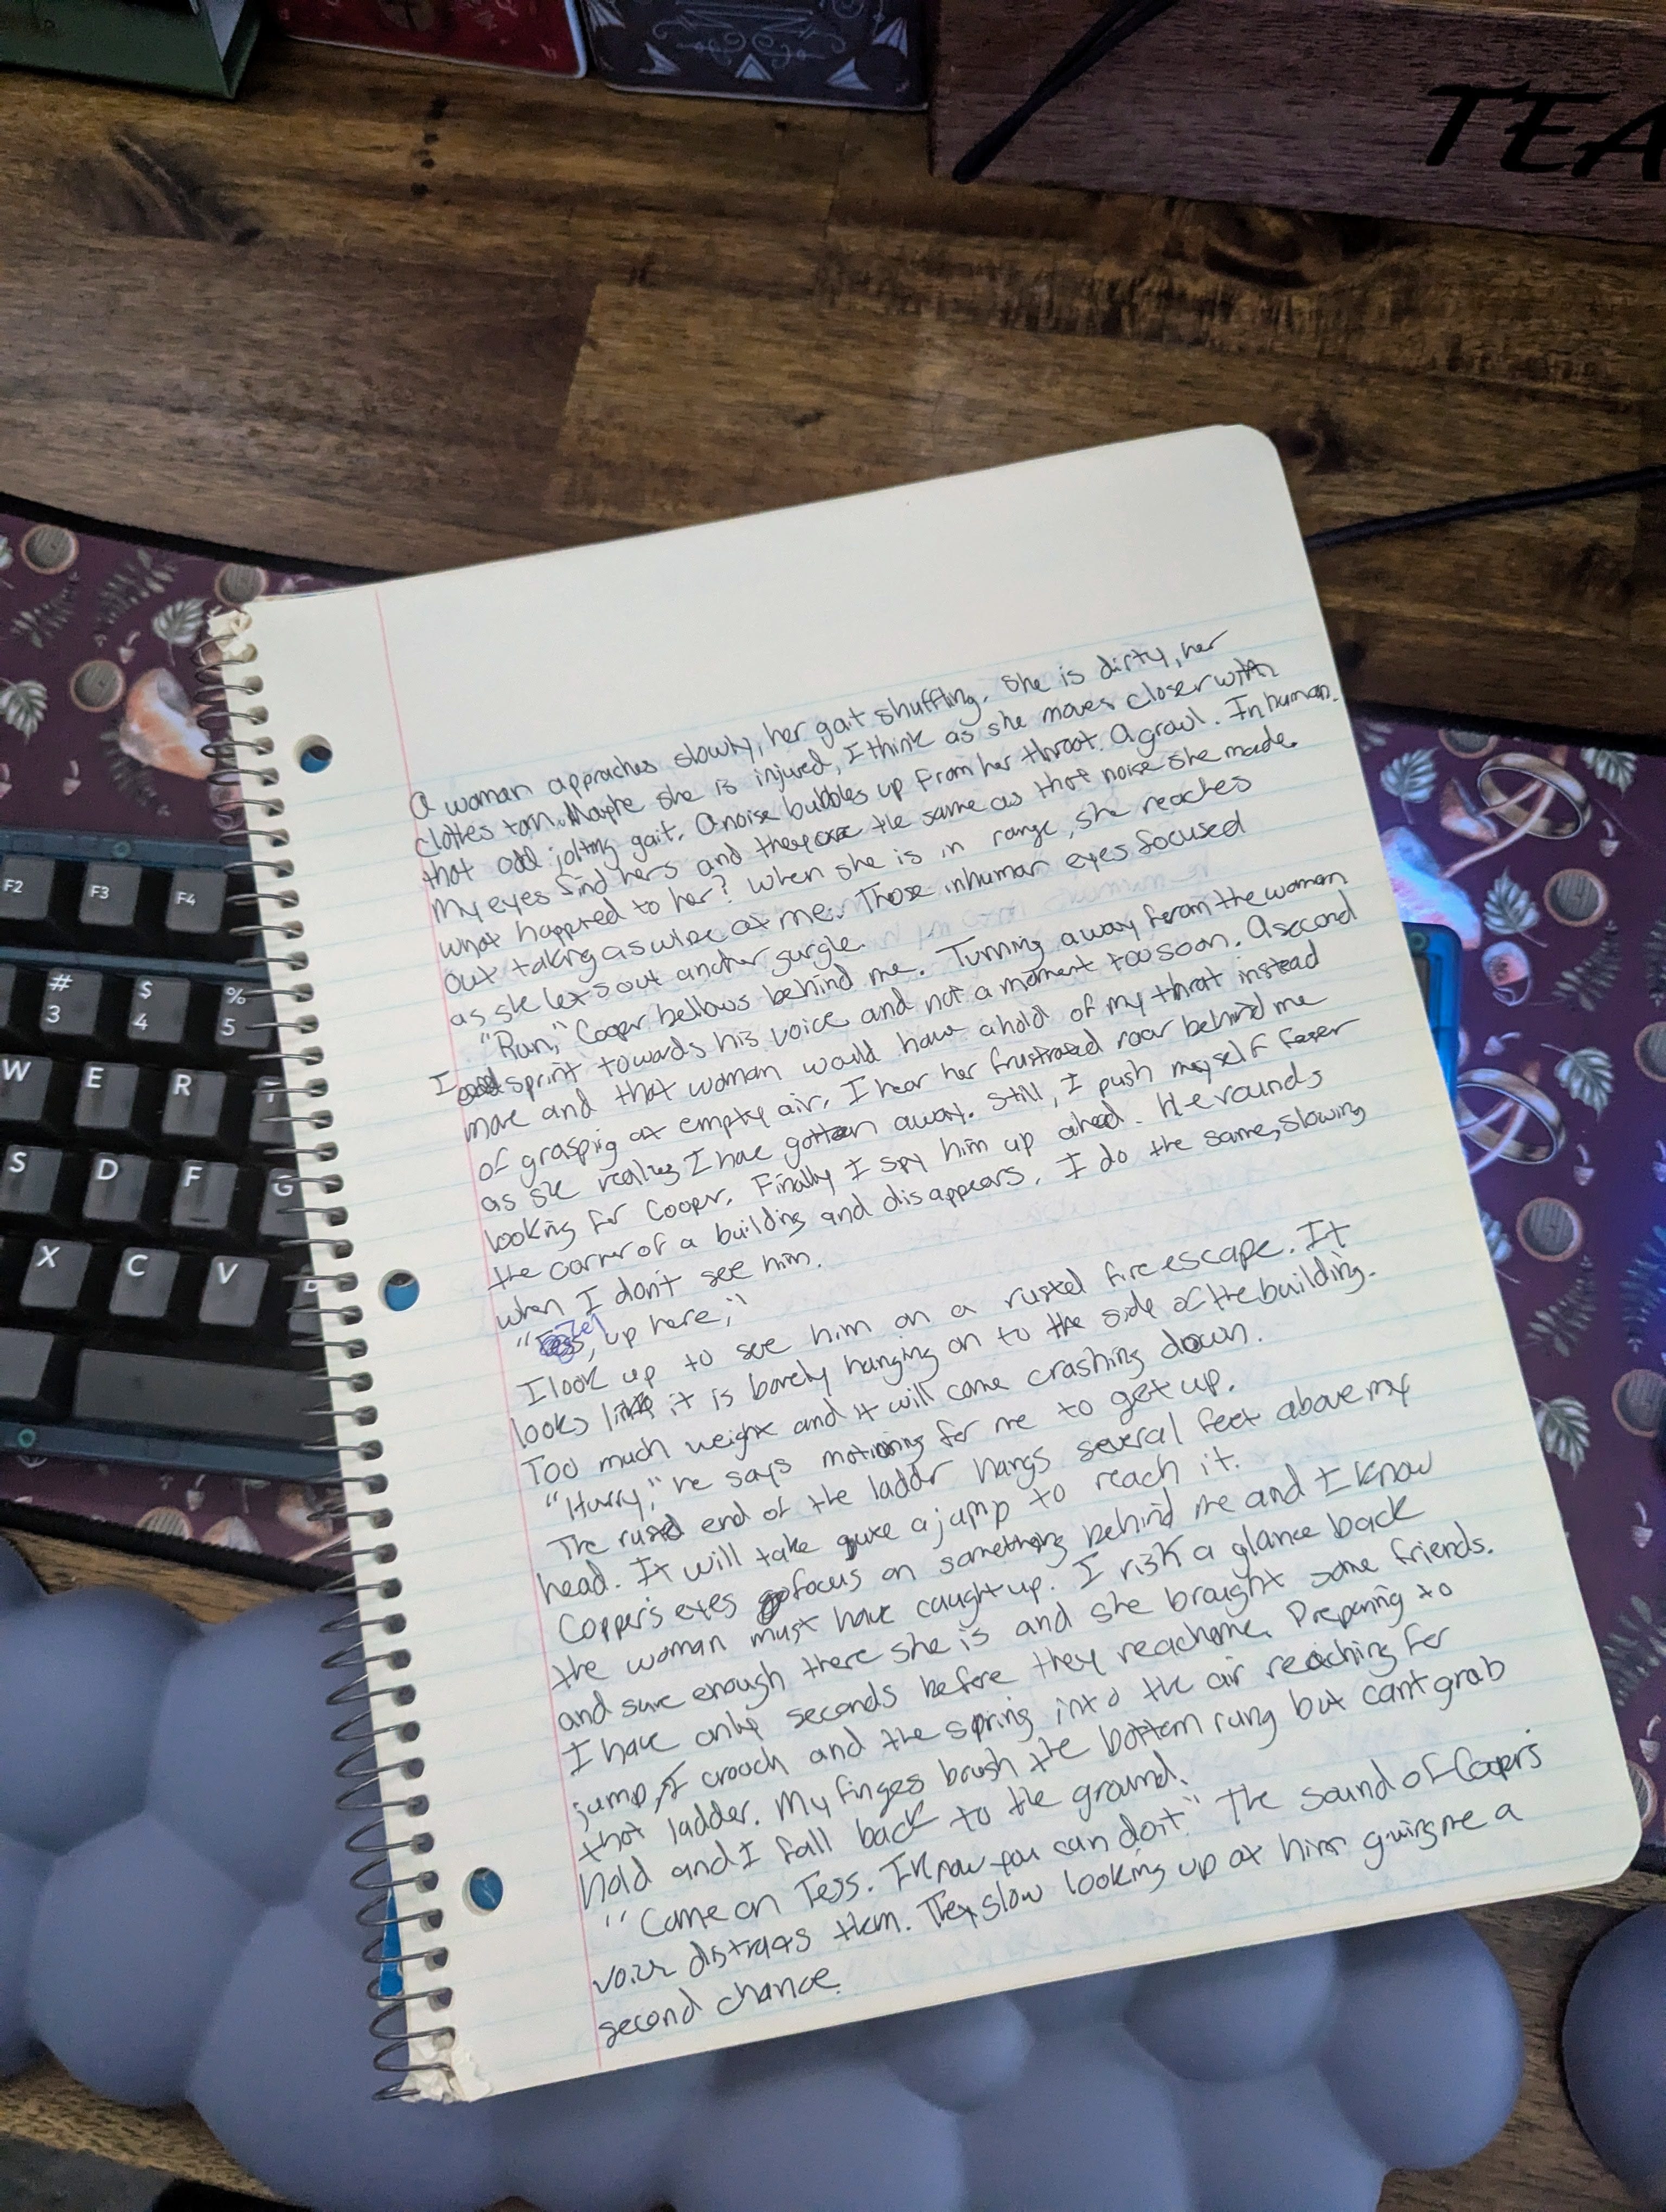 TEA
A woman approaches slowly, her gait shuffling. She is dirty, her
clothes torn. Maybe she is injured, I think as she moves closer with
that odd jolting gait. A noise bubbles up from her throat. A growl. Inhuman.
My eyes find hers and they are the same as that noise she made.
What happened to her? When she is in range, she reaches
out taking a swipe at me. Those inhuman eyes focused
as she lets out another gurgle.
"Run," Cooper bellows behind me. Turning away from the woman
I sprint towards his voice and not a moment too soon. A second
more and that woman would have ahold of my throat instead
of grasping at empty air. I hear her frustrated roar behind me
as she realizes I have gotten away. Still, I push myself faster
looking for Cooper. Finally I spy him up ahead. He rounds
the corner of a building and disappears. I do the same, slowing
when I don't see him.
", up here,"
I look up to see him on a rusted fire escape. It
looks like it is barely hanging on to the side of the building.
Too much weight and it will come crashing down.
"Hurry," he says motioning for me to get up.
The rusted end of the ladder hangs several feet above my
head. It will take quite a jump to reach it.
Copper's eyes focus on something behind me and I know
the woman must have caught up. I risk a glance back
and sure enough there she is and she brought some friends.
I have only seconds before they reach me. Preparing to
jump, I crouch and the spring into the air reaching for
that ladder. My finges brush the bottom rung but cant grab
hold and I fall back to the ground.
"Come on Tess. I know you can do it." The sound of Cooper's
voice distracts them. They slow looking up at him giving me a
second chance.
F2 F3 F4
# 3 $ 4 % 5
W E R T
S D F G
X C V